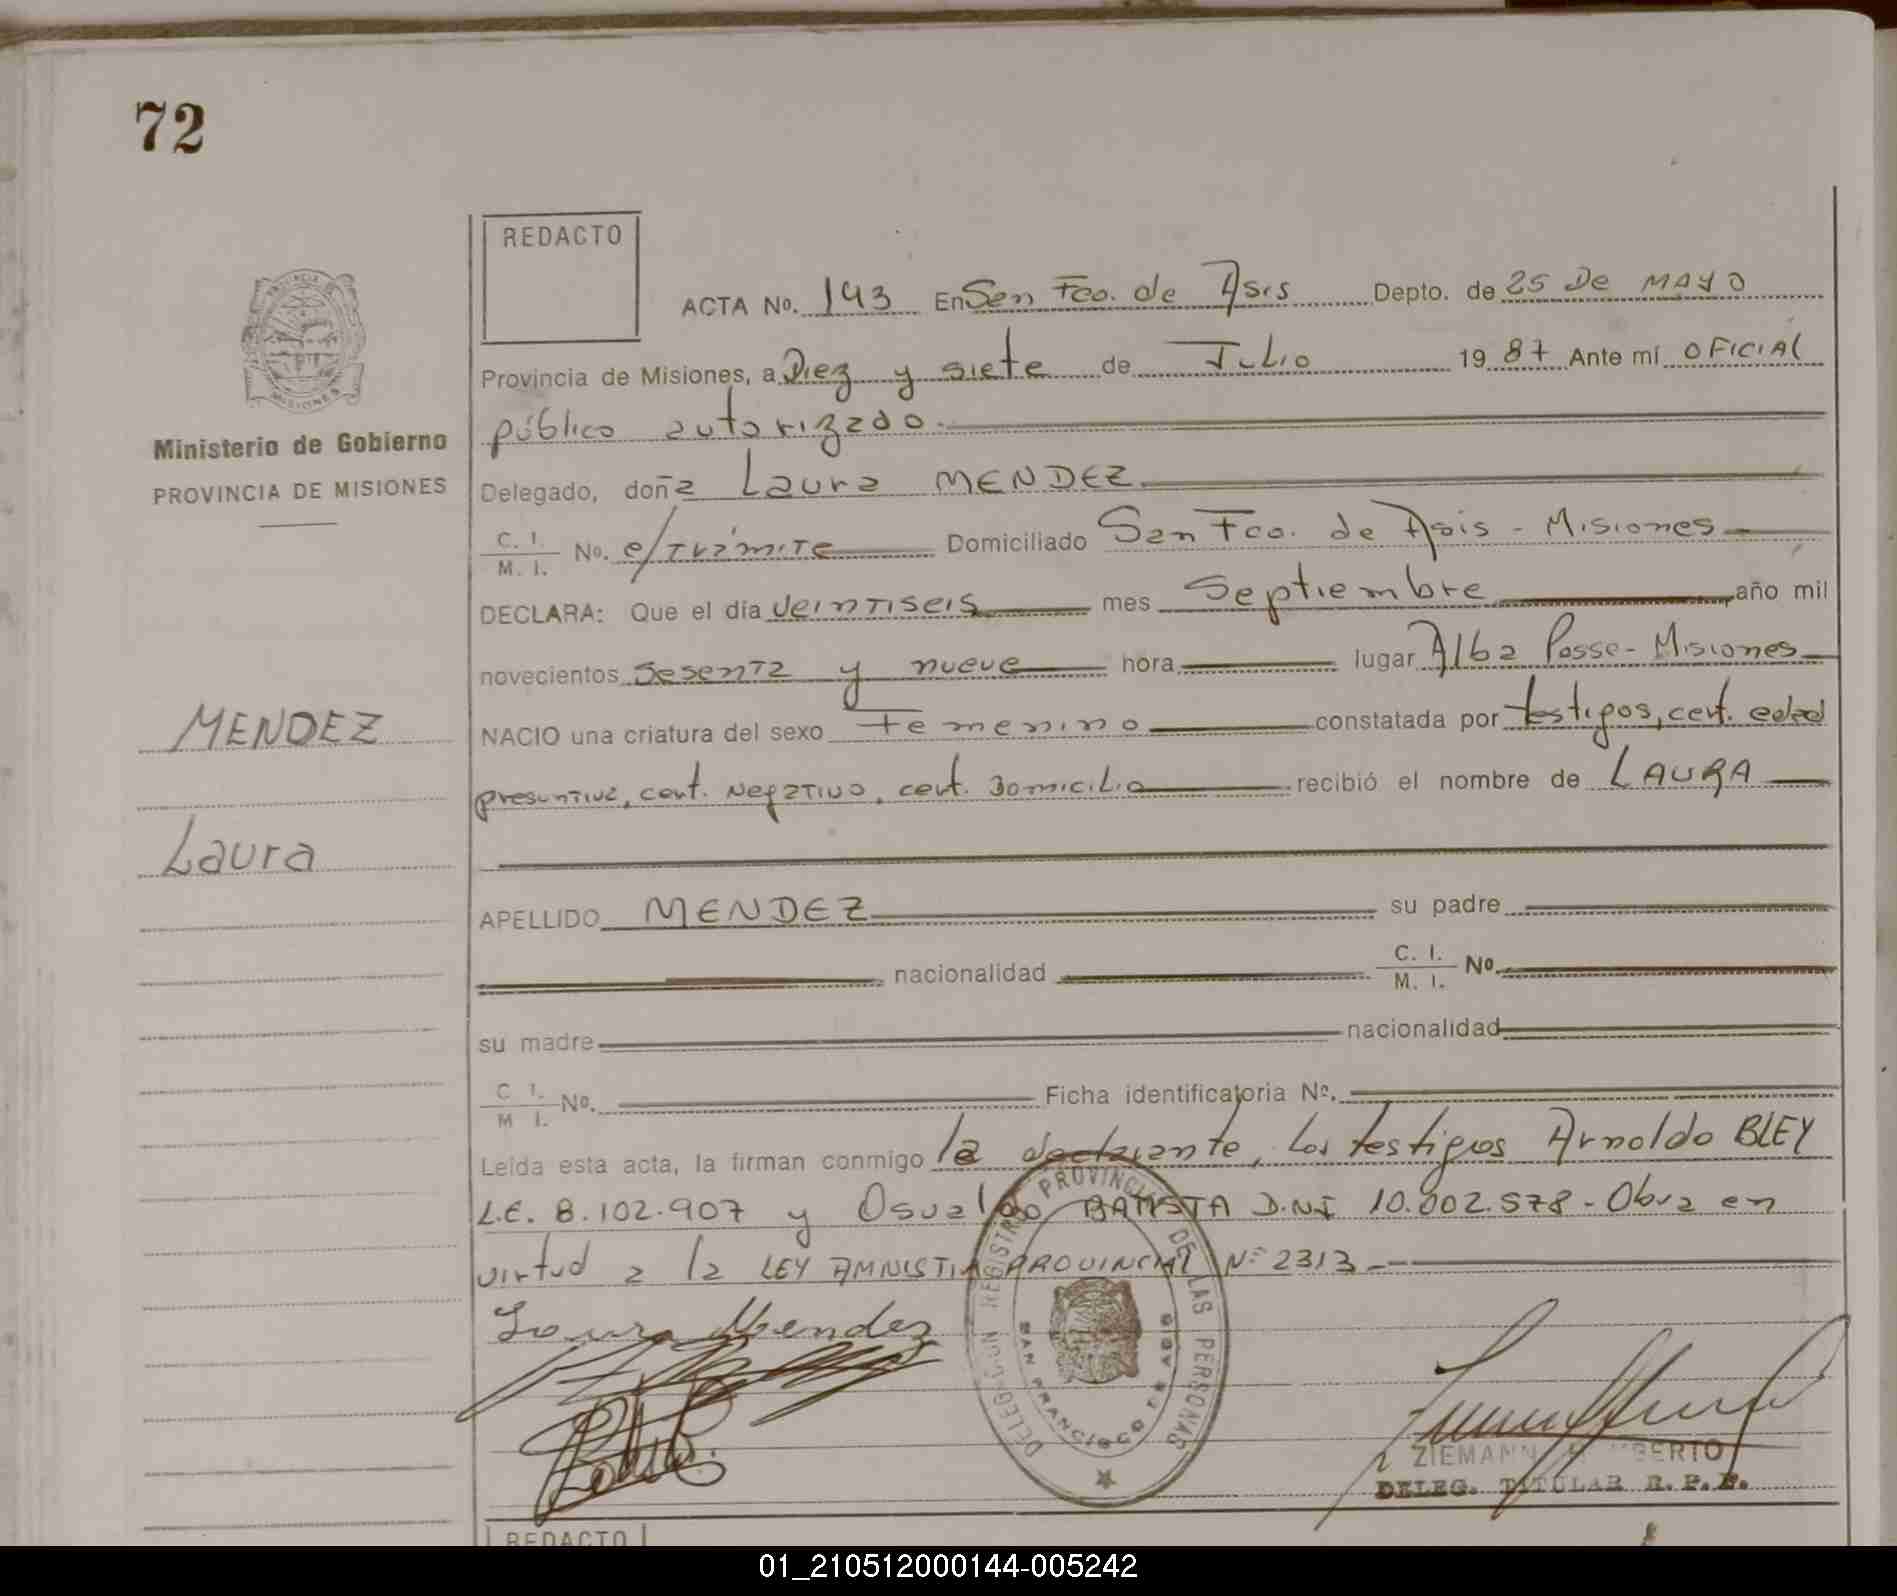 72
REDACTO
ACTA No. 143 En San Fco. de Asis Depto. de 25 De MAYO
Provincia de Misiones, a Diez y siete de Julio 1987 Ante mí OFICIAL
público autorizado.
Ministerio de Gobierno
PROVINCIA DE MISIONES
Delegado, doña Laura MENDEZ
C. I. / M. I. No. e/Trámite Domiciliado San Fco. de Asis - Misiones
DECLARA: Que el día veintiseis mes Septiembre año mil
novecientos sesenta y nueve hora lugar Alba Posse - Misiones
MENDEZ
NACIO una criatura del sexo Femenino constatada por testigos, cert. edad
presuntiva, cert. Negativo, cert. Domicilio recibió el nombre de LAURA
Laura
APELLIDO MENDEZ su padre
nacionalidad C. I. / M. I. No.
su madre nacionalidad
C I. / M I. No. Ficha identificatoria No.
Leída esta acta, la firman conmigo la declarante, los testigos Arnoldo BLEY
L.E. 8.102.907 y Osvaldo BATISTA D.N.I 10.002.578 - Obra en
virtud a la LEY AMNISTIA PROVINCIAL Nº 2313.-
Laura Mendez
DELEGACION REGISTRO PROVINCIAL DE LAS PERSONAS
SAN FRANCISCO DE ASIS
ZIEMANN HUMBERTO
DELEG. TITULAR R. P. P.
REDACTO
01_210512000144-005242